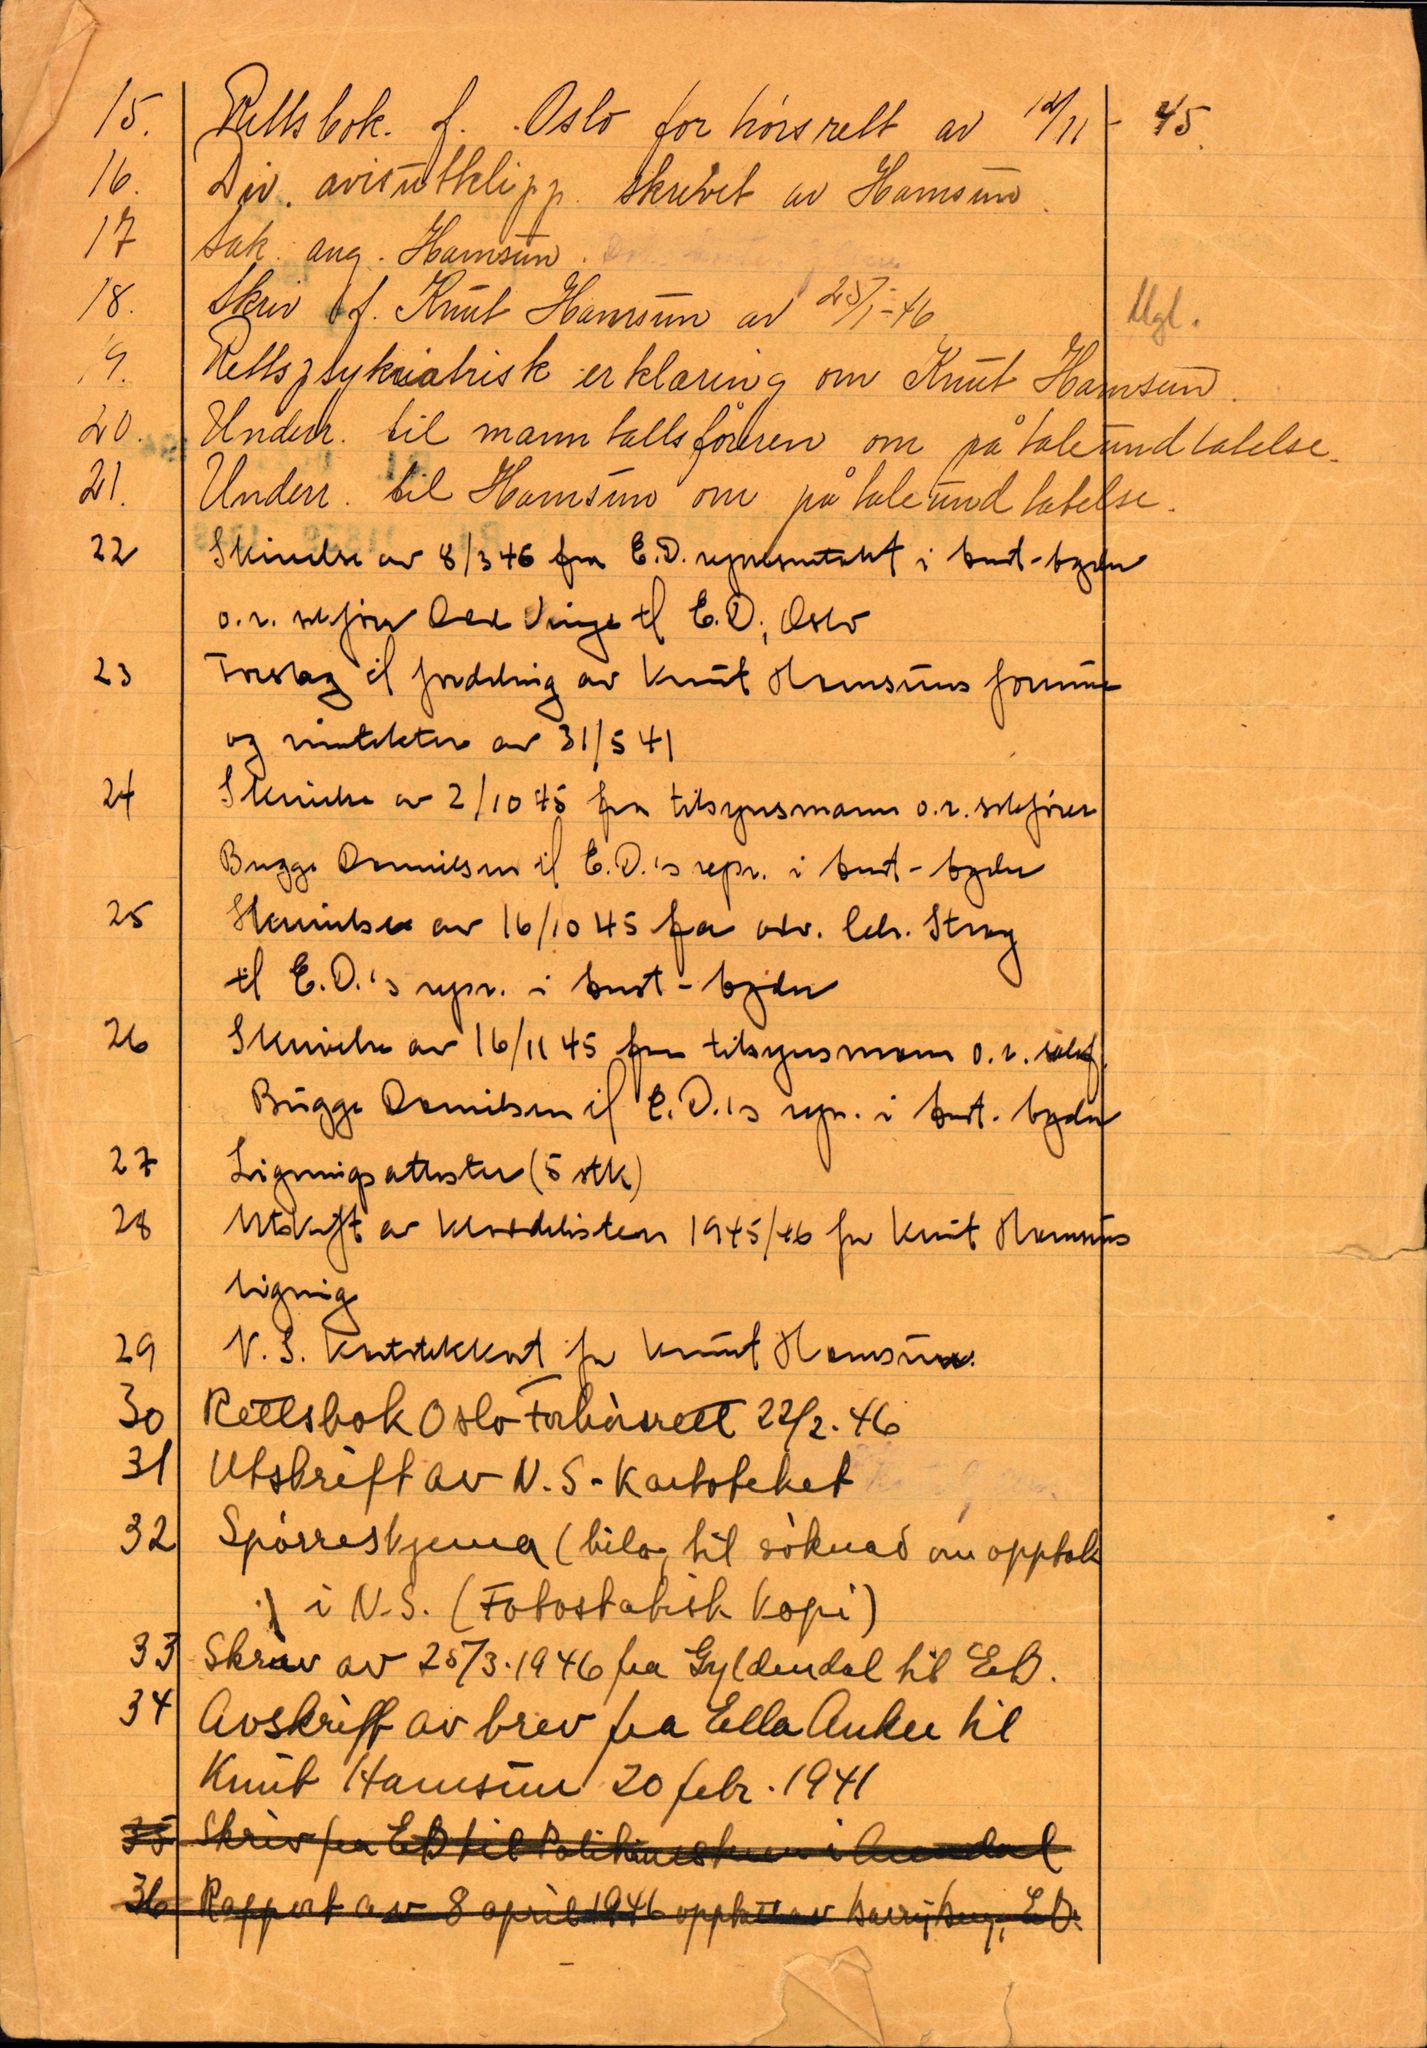 15. Rettsbok. f. Oslo forhörsrett av 12/11 - 45.
16. Div. avisutklipp. skrevet av Hamsun.
17 Sak. ang. Hamsun.
18. Skriv f. Knut Hamsun av 25/1-46 Mgl.
19. Rettspsykiatrisk erklæring om Knut Hamsun.
20. Underr. til manntallsföreren om påtaleundlatelse.
21. Underr. til Hamsun om påtaleundlatelse.
22 Skrivelse av 8/3 46 fra E.D. representant i Aust-Agder
o.r. sakfører Odd Vinge til E.D., Oslo
23 Forslag til fordeling av Knut Hamsuns formue
og inntekter av 31/5 41
24 Skrivelse av 2/10 45 fra tilsynsmann o.r. sakfører
Bugge Danielsen til E.D.'s repr. i Aust-Agder
25 Skrivelse av 16/10 45 fra adv. Chr. Stray
til E.D.'s repr. i Aust-Agder
26 Skrivelse av 16/11 45 fra tilsynsmann o.r. sakf.
Bugge Danielsen til E.D.'s repr. i Aust-Agder
27 Ligningsattester (5 stk)
28 Utskrift av 1945/46 for Knut Hamsuns
ligning
29 N.S. kartotekkort for Knut Hamsun.
30 Rettsbok Oslo Forhörsrett 22/2.46
31 Utskrift av N.S-Kartoteket
32 Spörreskjema (bilag til söknad om opptak
i N.S. (Fotostatisk kopi)
33 Skriv av 25/3.1946 fra Gyldendal til ED.
34 Avskrift av brev fra Ella Anker til
Knut Hamsun 20 febr. 1941
35 Skriv fra ED til Politikammeret i Arendal
36 Rapport av 8 april 1946 opptatt av Berg, ED.